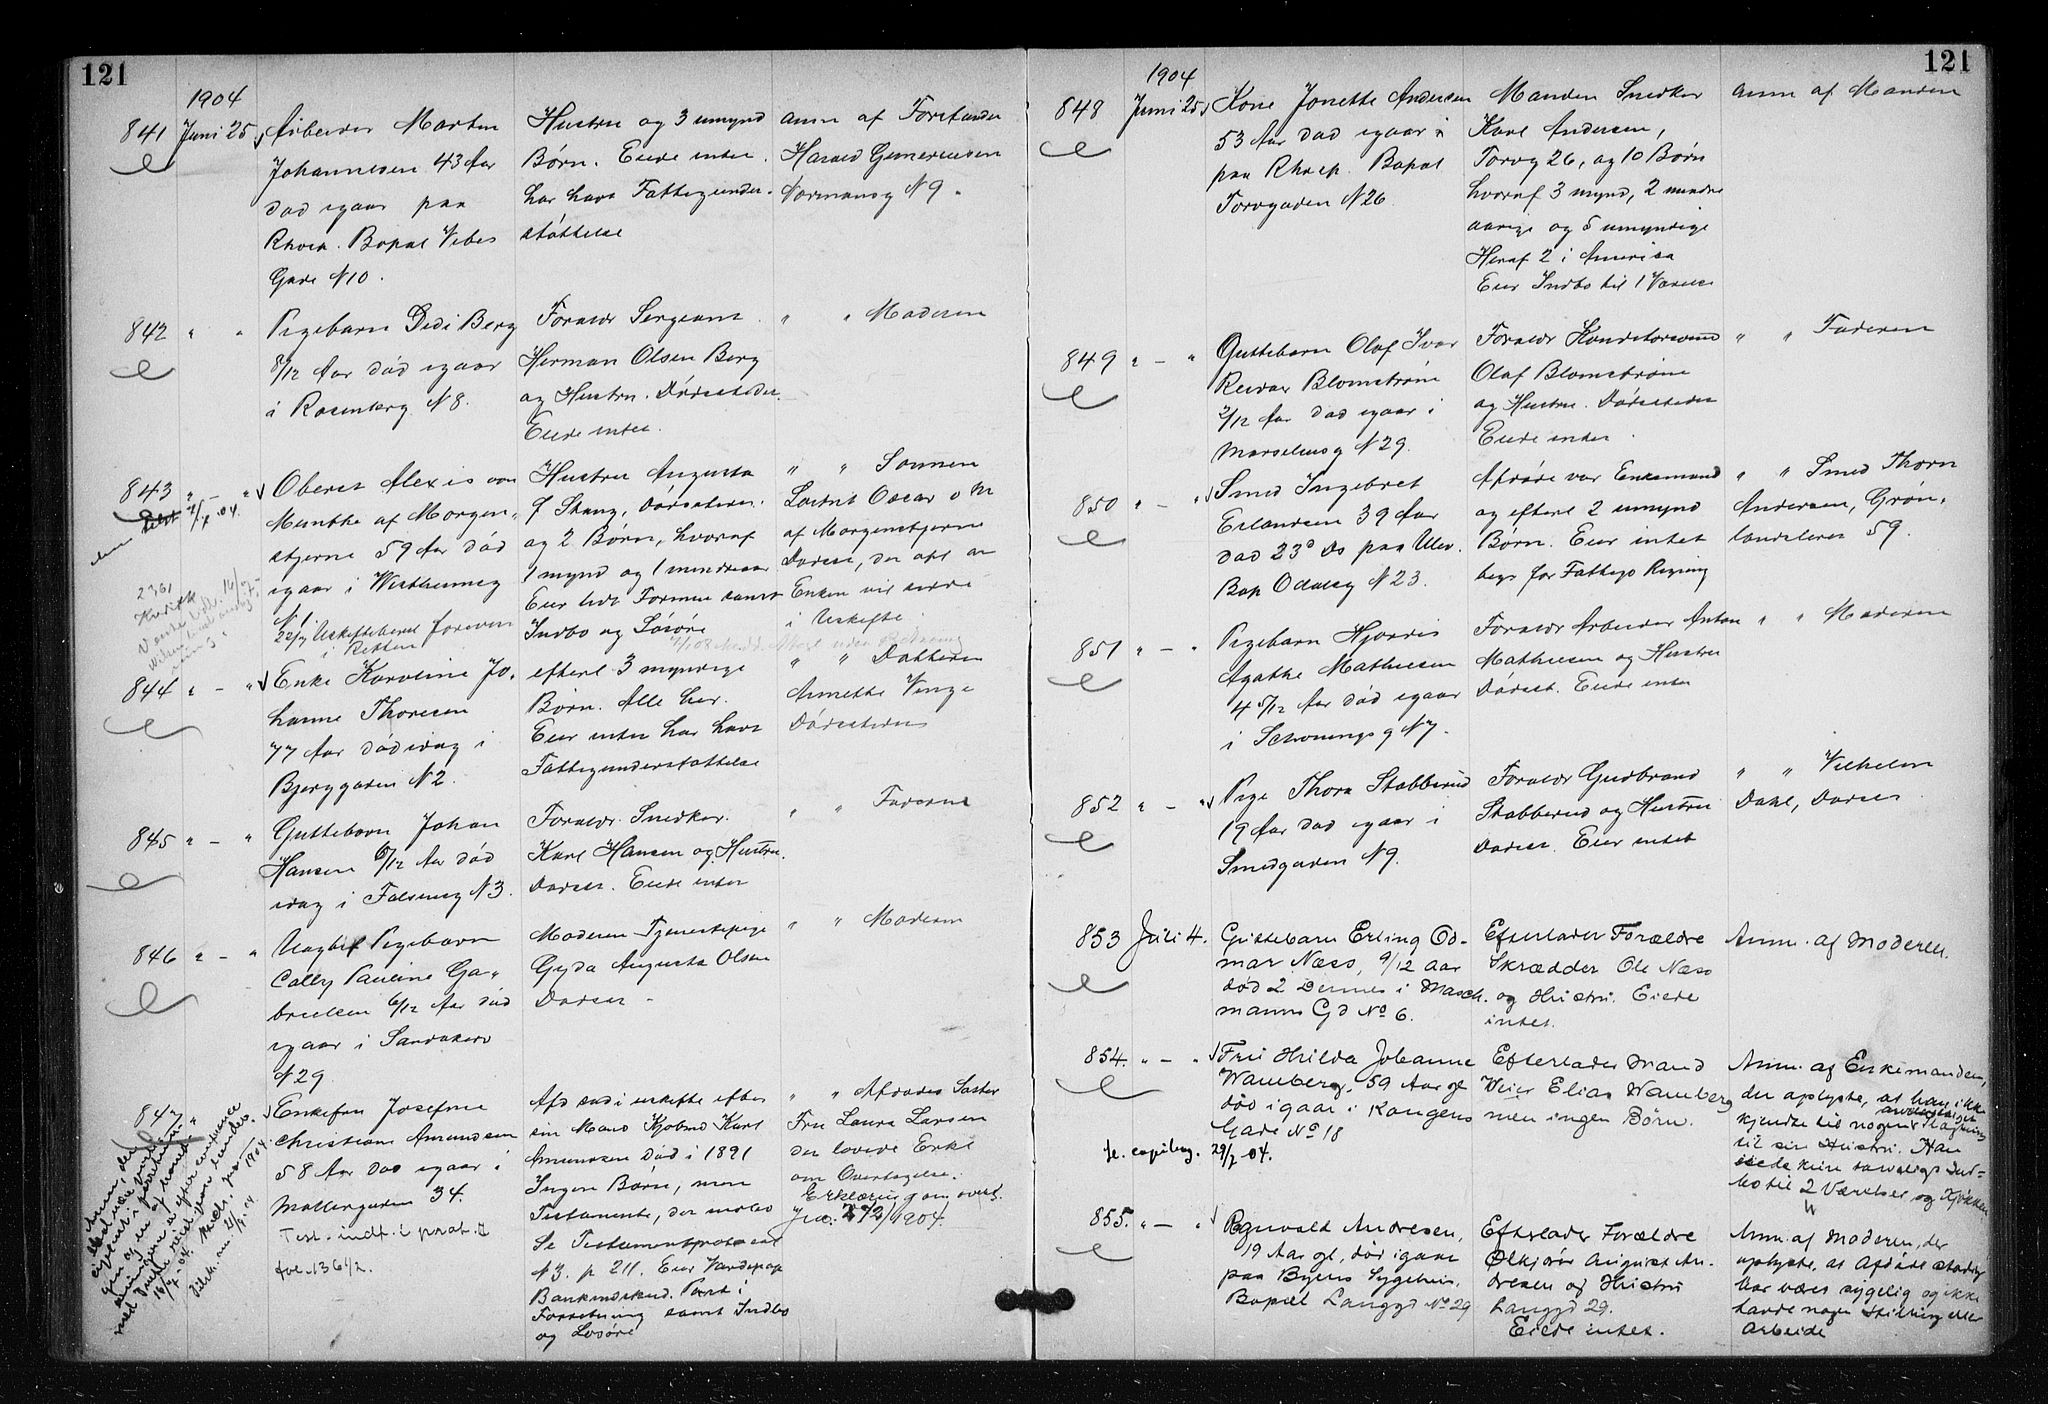 121
1904
841 Juni 25 Arbeider Morten
Johannesen 43 Aar
død igaar paa
Rhosp. Bopæl Vibes
Gade N 10.
Hustru og 3 umynd
Børn. Eiede intet.
har havt Fattigunder-
støttelse
anm af Forstander
Harald Guneriussen
Normansg N 9.
842 " " Pigebarn Didi Berg
8/12 Aar død igaar
i Rosenborg N 8.
Forældr Sergeant
Herman Olsen Berg
og Hustru. Dødsstedet.
Eiede intet.
" " Moderen
843 " - " Oberst Alexis von
Munthe af Morgen-
stjerne 59 Aar død
igaar i Vestheimsg
N 1.
22/7 Uskiftebevil foreven
i Retten
Hustru Augusta
f Stang, Dødsstedet.
og 2 Børn, hvoraf
1 mynd og 1 mindreaar
Eier lidt Formue samt
Indbo og Løsøre
" " Sønnen
Løitnt Oscar v M
af Morgenstjerne
Dødsst, der opl at
Enken vil sidde
i Uskifte
844 " - " Enke Karoline Jo-
hanne Thoresen
77 Aar død idag i
Bjerggaden N 2.
efterl 3 myndige
Børn. Alle her.
Eier intet har havt
Fattigunderstøttelse
" " Datteren
Annette Vinge
Dødsstedet
845 " - " Guttebarn Johan
Hansen 6/12 Aar død
idag i Falsensg N 3.
Forældr. Snedker
Karl Hansen og Hustru.
Dødsst. Eiede intet
" " Faderen
846 " - " Uægte Pigebarn
Cally Pauline Ga-
brielsen 6/12 Aar død
igaar i Sandakerv
N 29
Moderen Tjenestepige
Gyda Augusta Olsen
Dødsst -
" " Moderen
847 " Enkefru Josefine
Christiane Amundsen
58 Aar død igaar i
Møllergaden 34.
Test. indt. i prot. 2
fol. 136 1/2.
Afd sad i uskifte efter
sin Mand Kjøbmd Karl
Amundsen død i 1891
Ingen Børn, men
Testamente, der
Se Testamentprotocol
N 3. p 211. Eier Værdipap
Bankindskud. Part i
Forretning samt Indbo
og Løsøre
" " Afdødes Søster
Fru Laura Larsen
der lovede Erkl
om Overtagelse.
Erklæring om overt.
Jno. 272/1904.
121
1904
848 Juni 25 Kone Jonette Andersen
53 Aar død igaar
paa Rhosp. Bopæl
Torvgaden N 26
Manden Snedker
Karl Andersen,
Torvg 26, og 10 Børn
hvoraf 3 mynd, 2 mindre
aarige og 5 umyndige
Heraf 2 i Amerika
Eier Indbo til 1 Værelse
anm af Manden
849 " - " Guttebarn Olaf Ivar
Reidar Blomstrøm
2/12 Aar død igaar i
Marselisusg N 29.
Forældr Konditorsvend
Olaf Blomstrøm
og Hustru. Dødsstedet
Eiede intet.
" " Faderen
850 " - " Smed Ingebret
Erlandsen 39 Aar
død 23d Ds paa Ullev.
Bop Odalsg N 23.
Afdøde var Enkemand
og efterl 2 umynd
Børn. Eier intet
begr for Fattigv Regning
" " Smed Thorn
Andersen, Grøn-
landsleret 59.
851 " - " Pigebarn Hjørdis
Agathe Mathiesen
4 5/12 Aar død igaar
i Schweningsg N 7.
Forældr Arbeider Anton
Mathiesen og Hustru
Dødsst. Eiede intet
" " Moderen
852 " - " Pige Thora Stabberud
19 Aar død igaar i
Smedgaden N 9.
Forældr Gudbrand
Stabberud og Hustru
Dødsst. Eier intet
" " Vilhelm
Dahl, Dødsst
853 Juli 4. Guttebarn Erling Od-
mar Næss, 9/12 Aar
død 2 Dennes i Masch-
manns Gd No 6.
Efterlader Forældre
Skrædder Ole Næss
og Hustru. Eiede
intet.
Anm. af Moderen.
854. " - " Fru Hilda Johanne
Wamberg, 59 Aar gl
død igaar i Kongens
Gade No 18
29/7 04.
Efterlader Mand
Veier Elias Wamberg
men ingen Børn.
Anm. af Enkemanden,
der oplyste, at han ikke
kjendte til nogen
til sin Hustru. Han
eiede kun Ind-
bo til 2 Værelser og Kjøkken
855. " - " Ragnvald Andresen,
19 Aar gl, død igaar
paa Byens Sygehus.
Bopæl Langgd No 29
Efterlader Forældre
Ølkjører August An-
dresen og Hustru
Langgd 29.
Eiede intet.
Anm. af Moderen, der
oplyste, at Afdøde stadig
har været sygelig og ikke
havde nogen Stilling eller
Arbeide